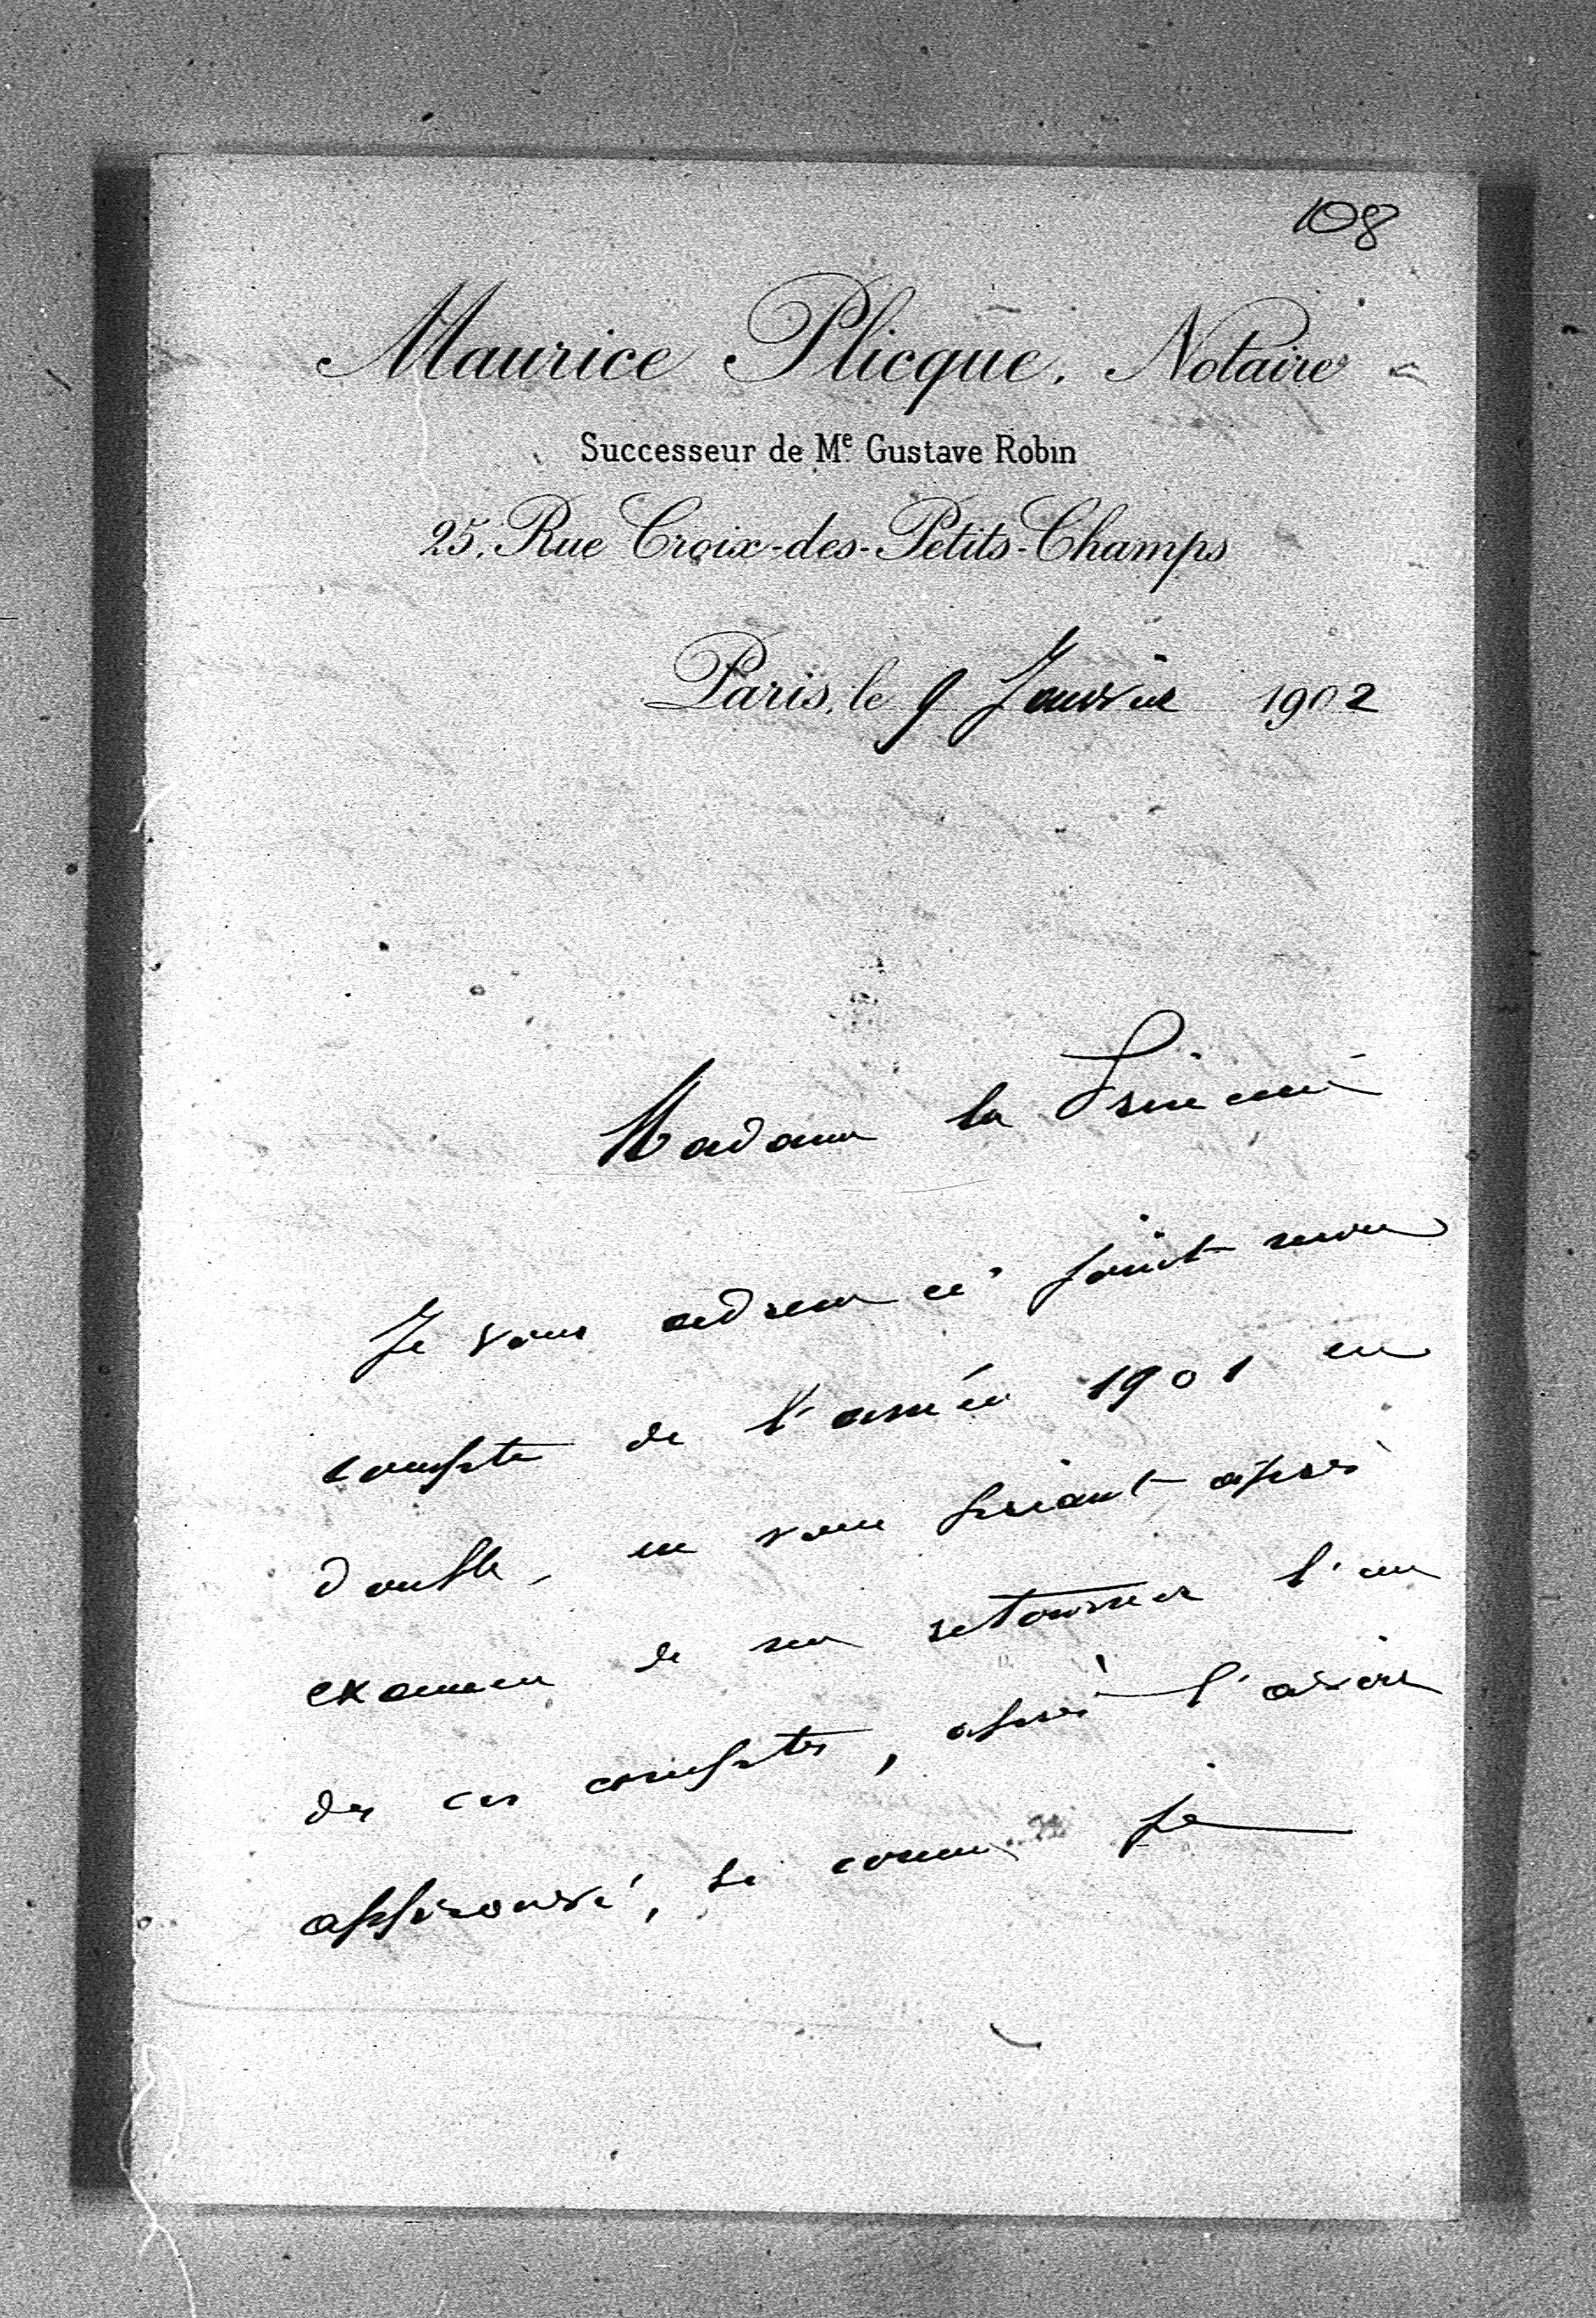 108
Maurice Plicque, Notaire
Successeur de Me Gustave Robin
25, Rue Croix-des-Petits-Champs
Paris, le 9 Janvier 1902
Madame la Princesse
Je vous adresse ci joint mon
compte de l'année 1901 en
double, en vous priant après
examen de me retourner l'un
de ces comptes, après l'avoir
approuvé, si comme je